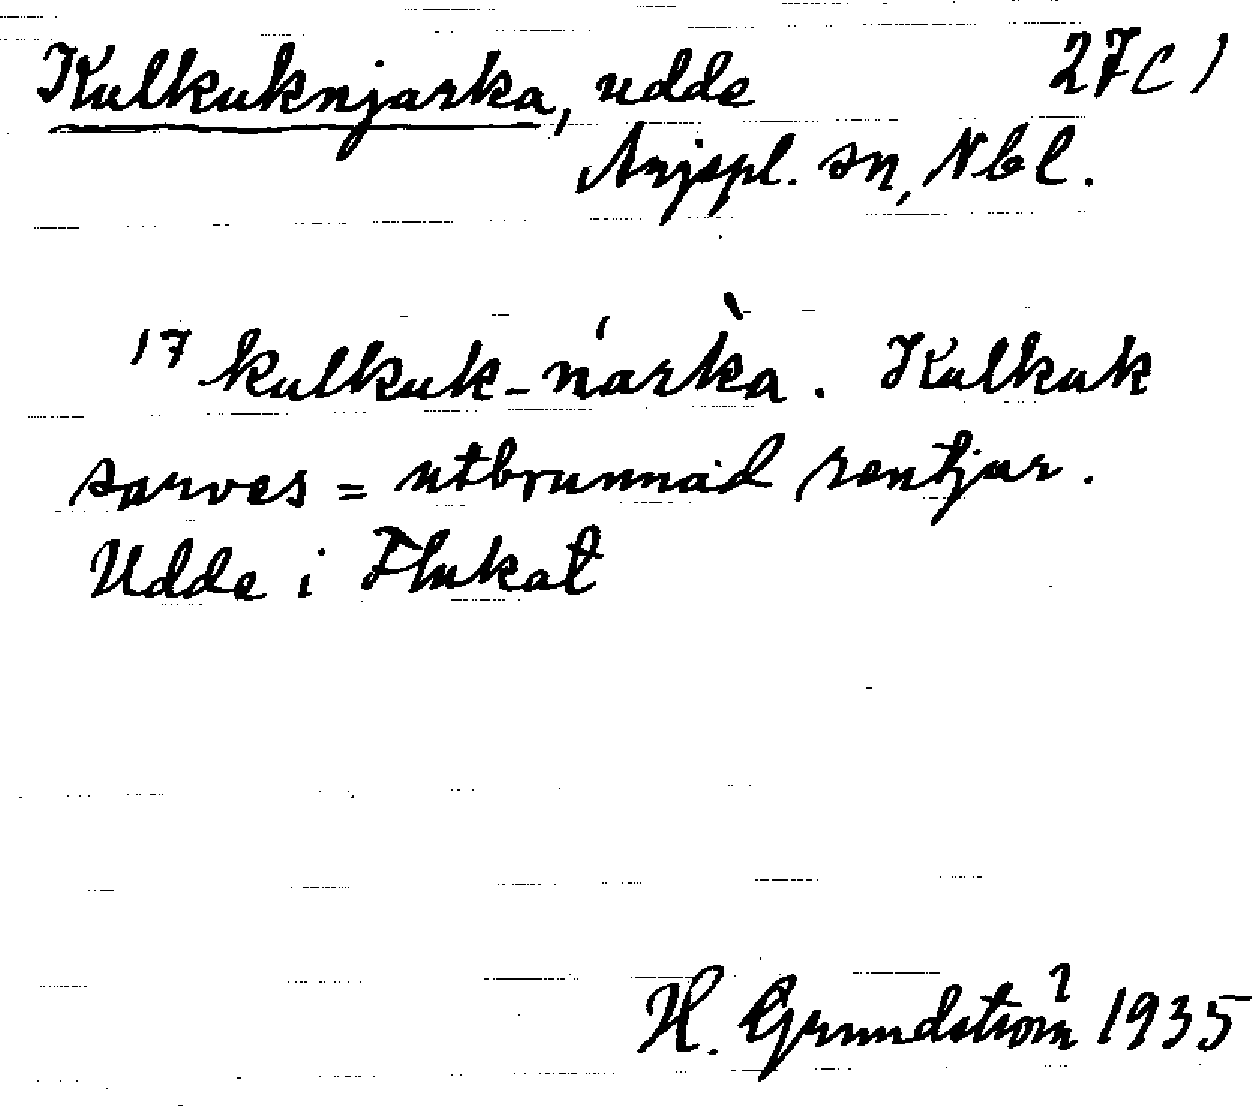 Kulkuknjarka, udde 27C1
Arjepl. sn, Nbl.
17 kulkuk-ńar̀ka. Kulkuk
sarves = utbrunnad rentjur.
Udde i Flukat
H. Grundström 1935